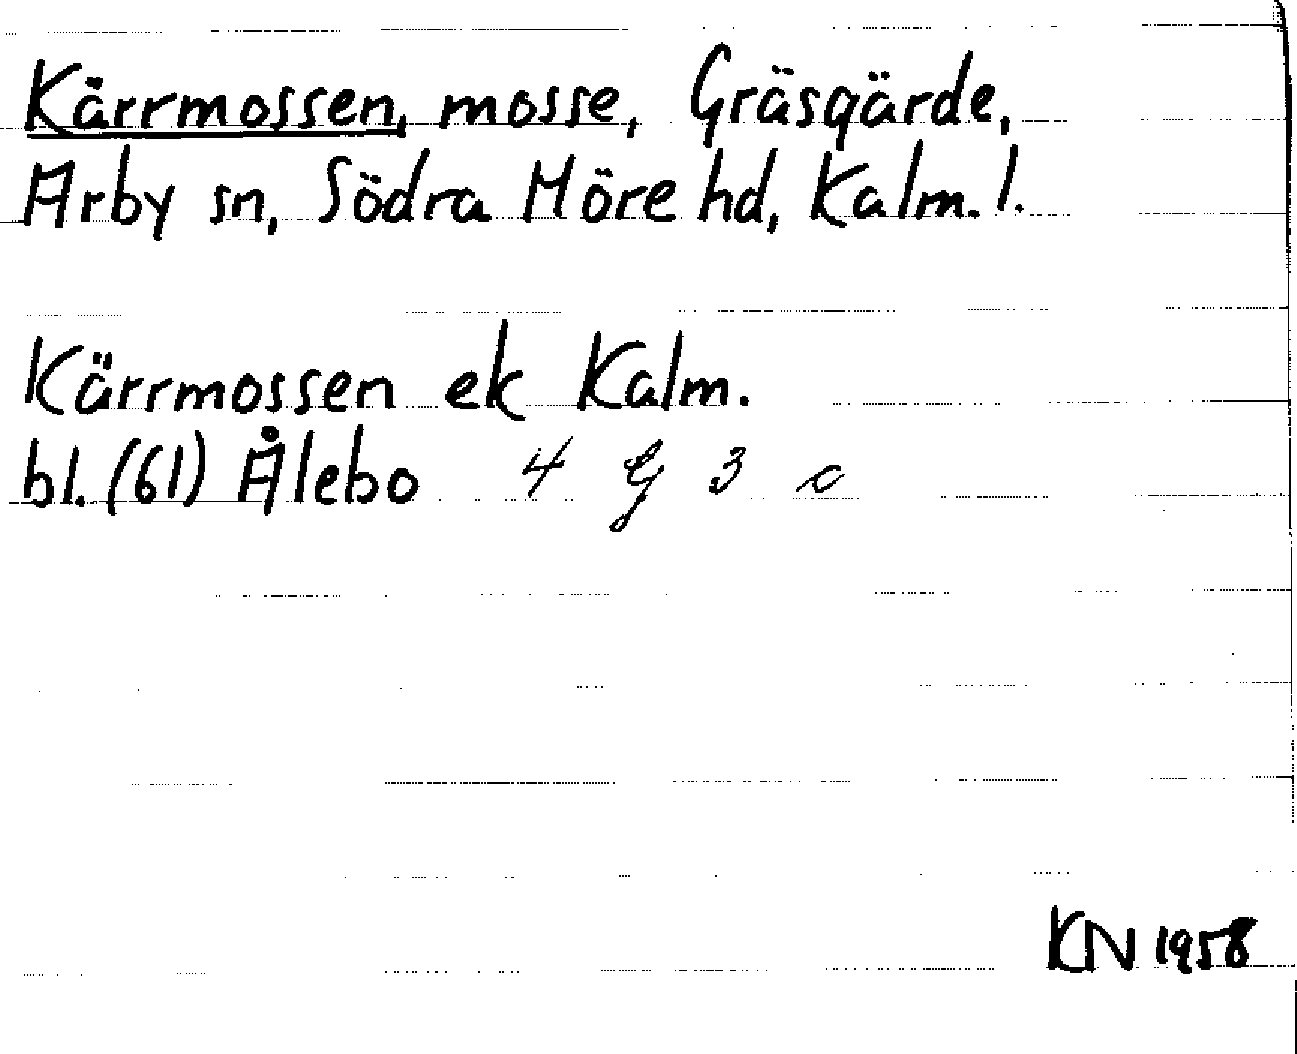 Kärrmossen, mosse, Gräsgärde,
Arby sn, Södra Möre hd, Kalm. l.
Kärrmossen ek Kalm.
bl. (61) Ålebo 4 G 3 c
KN 1958